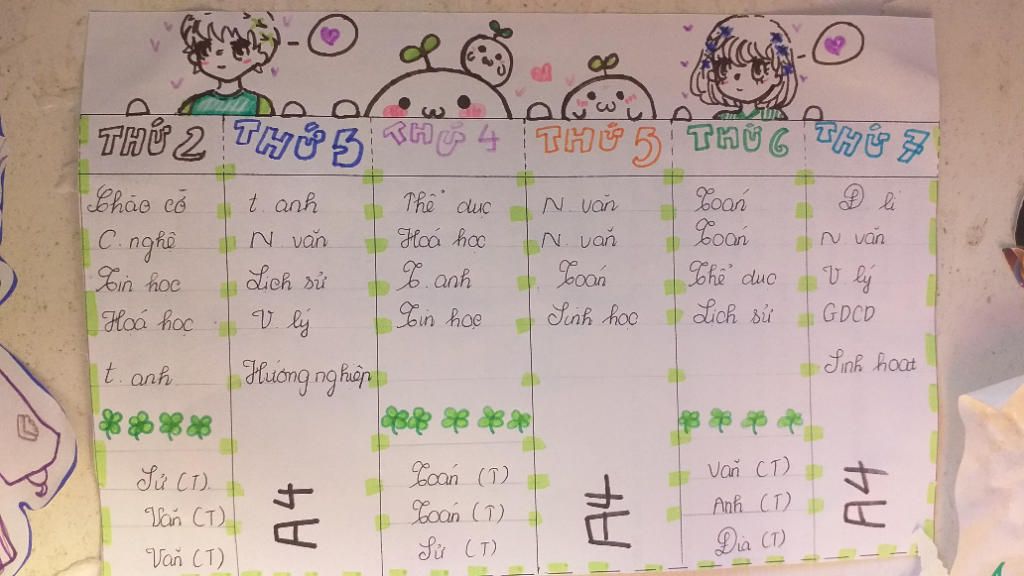 THỨ 2 THỨ 3 THỨ 4 THỨ 5 THỨ 6 THỨ 7
Chào cờ t. anh Thể dục N. văn Toán Đ lí
C. nghệ N. văn Hoá học N. văn Toán N văn
Tin học Lịch sử T. anh Toán Thể dục V lý
Hoá học V. lý Tin học Sinh học Lịch sử GDCD
t. anh Hướng nghiệp Sinh hoạt
Sử (T) A4 Toán (T) A4 Văn (T) A4
Văn (T) Toán (T) Anh (T)
Văn (T) Sử (T) Địa (T)